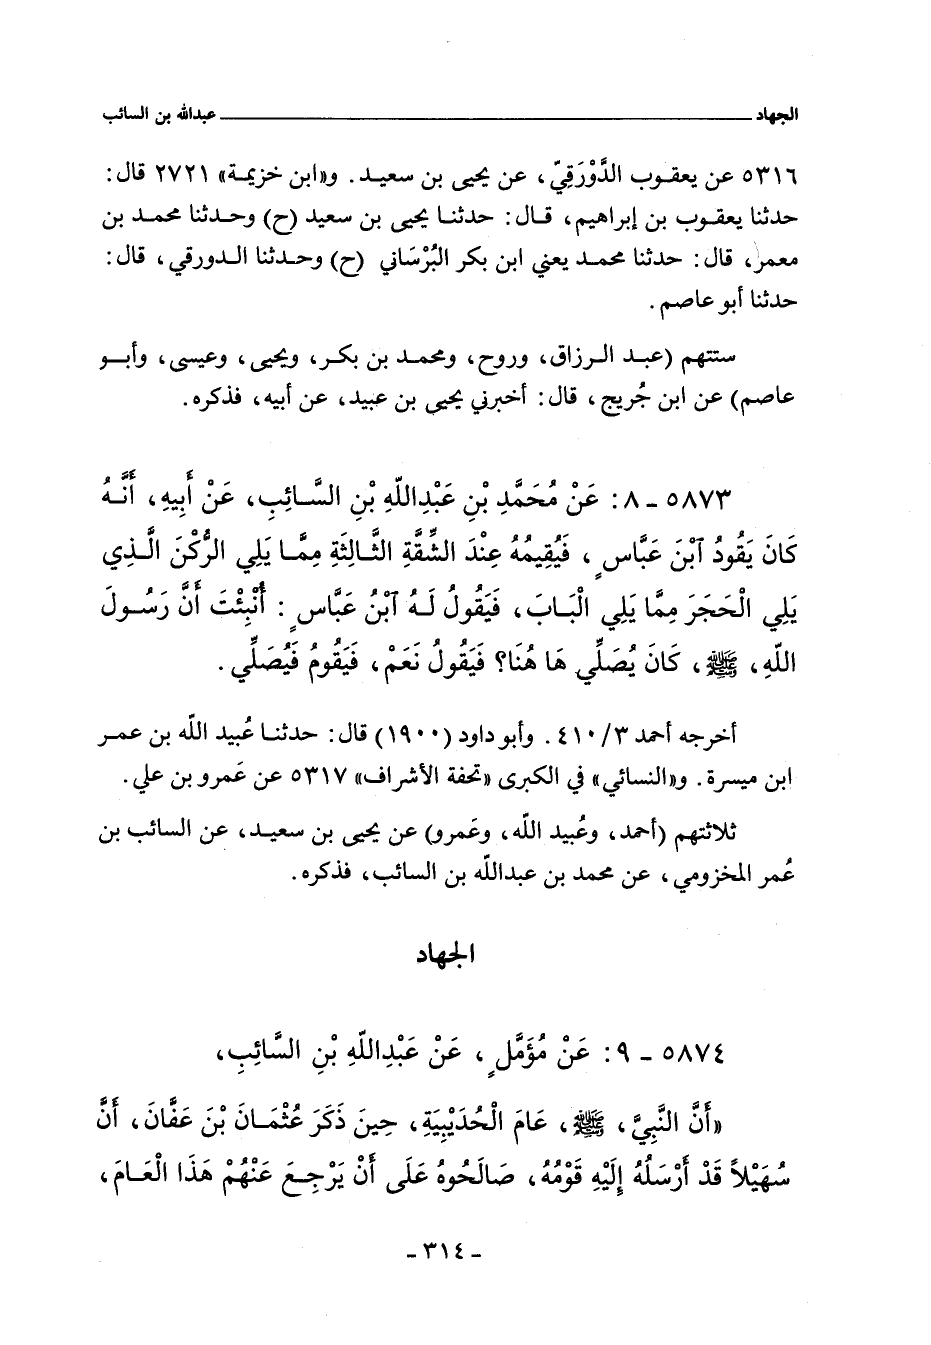 الجهاد ــــــــــ عبدالله بن السائب
٥٣١٦ عن يعقوب الدَّوْرَقِيّ، عن يحيى بن سعيد. و«ابن خزيمة» ٢٧٢١ قال:
حدثنا يعقوب بن إبراهيم، قال: حدثنا يحيى بن سعيد (ح) وحدثنا محمد بن
معمر، قال: حدثنا محمد يعني ابن بكر البُرْسَاني (ح) وحدثنا الدورقي، قال:
حدثنا أبو عاصم.
ستتهم (عبد الرزاق، وروح، ومحمد بن بكر، ويحيى، وعيسى، وأبو
عاصم) عن ابن جُريج، قال: أخبرني يحيى بن عبيد، عن أبيه، فذكره.
٥٨٧٣ ـ ٨: عَنْ مُحَمَّدِ بْنِ عَبْدِاللّهِ بْنِ السَّائِبِ، عَنْ أَبِيهِ، أَنَّهُ
كَانَ يَقُودُ ٱبْنَ عَبَّاسٍ، فَيُقِيمُهُ عِنْدَ الشِّقَّةِ الثَّالِثَةِ مِمَّا يَلِي الرُّكْنَ الَّذِي
يَلِي الْحَجَرَ مِمَّا يَلِي الْبَابَ، فَيَقُولُ لَهُ ٱبْنُ عَبَّاسٍ: أُنْبِئْتَ أَنَّ رَسُولَ
اللّهِ، ﷺ، كَانَ يُصَلِّي هَا هُنَا؟ فَيَقُولُ نَعَمْ، فَيَقُومُ فَيُصَلِّي.
أخرجه أحمد ٤١٠/٣. وأبو داود (١٩٠٠) قال: حدثنا عُبيد اللّه بن عمر
ابن ميسرة. و«النسائي» في الكبرى «تحفة الأشراف» ٥٣١٧ عن عَمرو بن علي.
ثلاثتهم (أحمد، وعُبيد اللّه، وعَمرو) عن يحيى بن سعيد، عن السائب بن
عُمر المخزومي، عن محمد بن عبداللّه بن السائب، فذكره.
الجهاد
٥٨٧٤ ـ ٩: عَنْ مُؤَمَّلٍ، عَنْ عَبْدِاللّهِ بْنِ السَّائِبِ،
«أَنَّ النَّبِيَّ، ﷺ، عَامَ الْحُدَيْبِيَةِ، حِينَ ذَكَرَ عُثْمَانَ بْنَ عَفَّانَ، أَنَّ
سُهَيْلاً قَدْ أَرْسَلُهُ إِلَيْهِ قَوْمُهُ، صَالَحُوهُ عَلَى أَنْ يَرْجِعَ عَنْهُمْ هَذَا الْعَامَ،
ـ ٣١٤ ـ